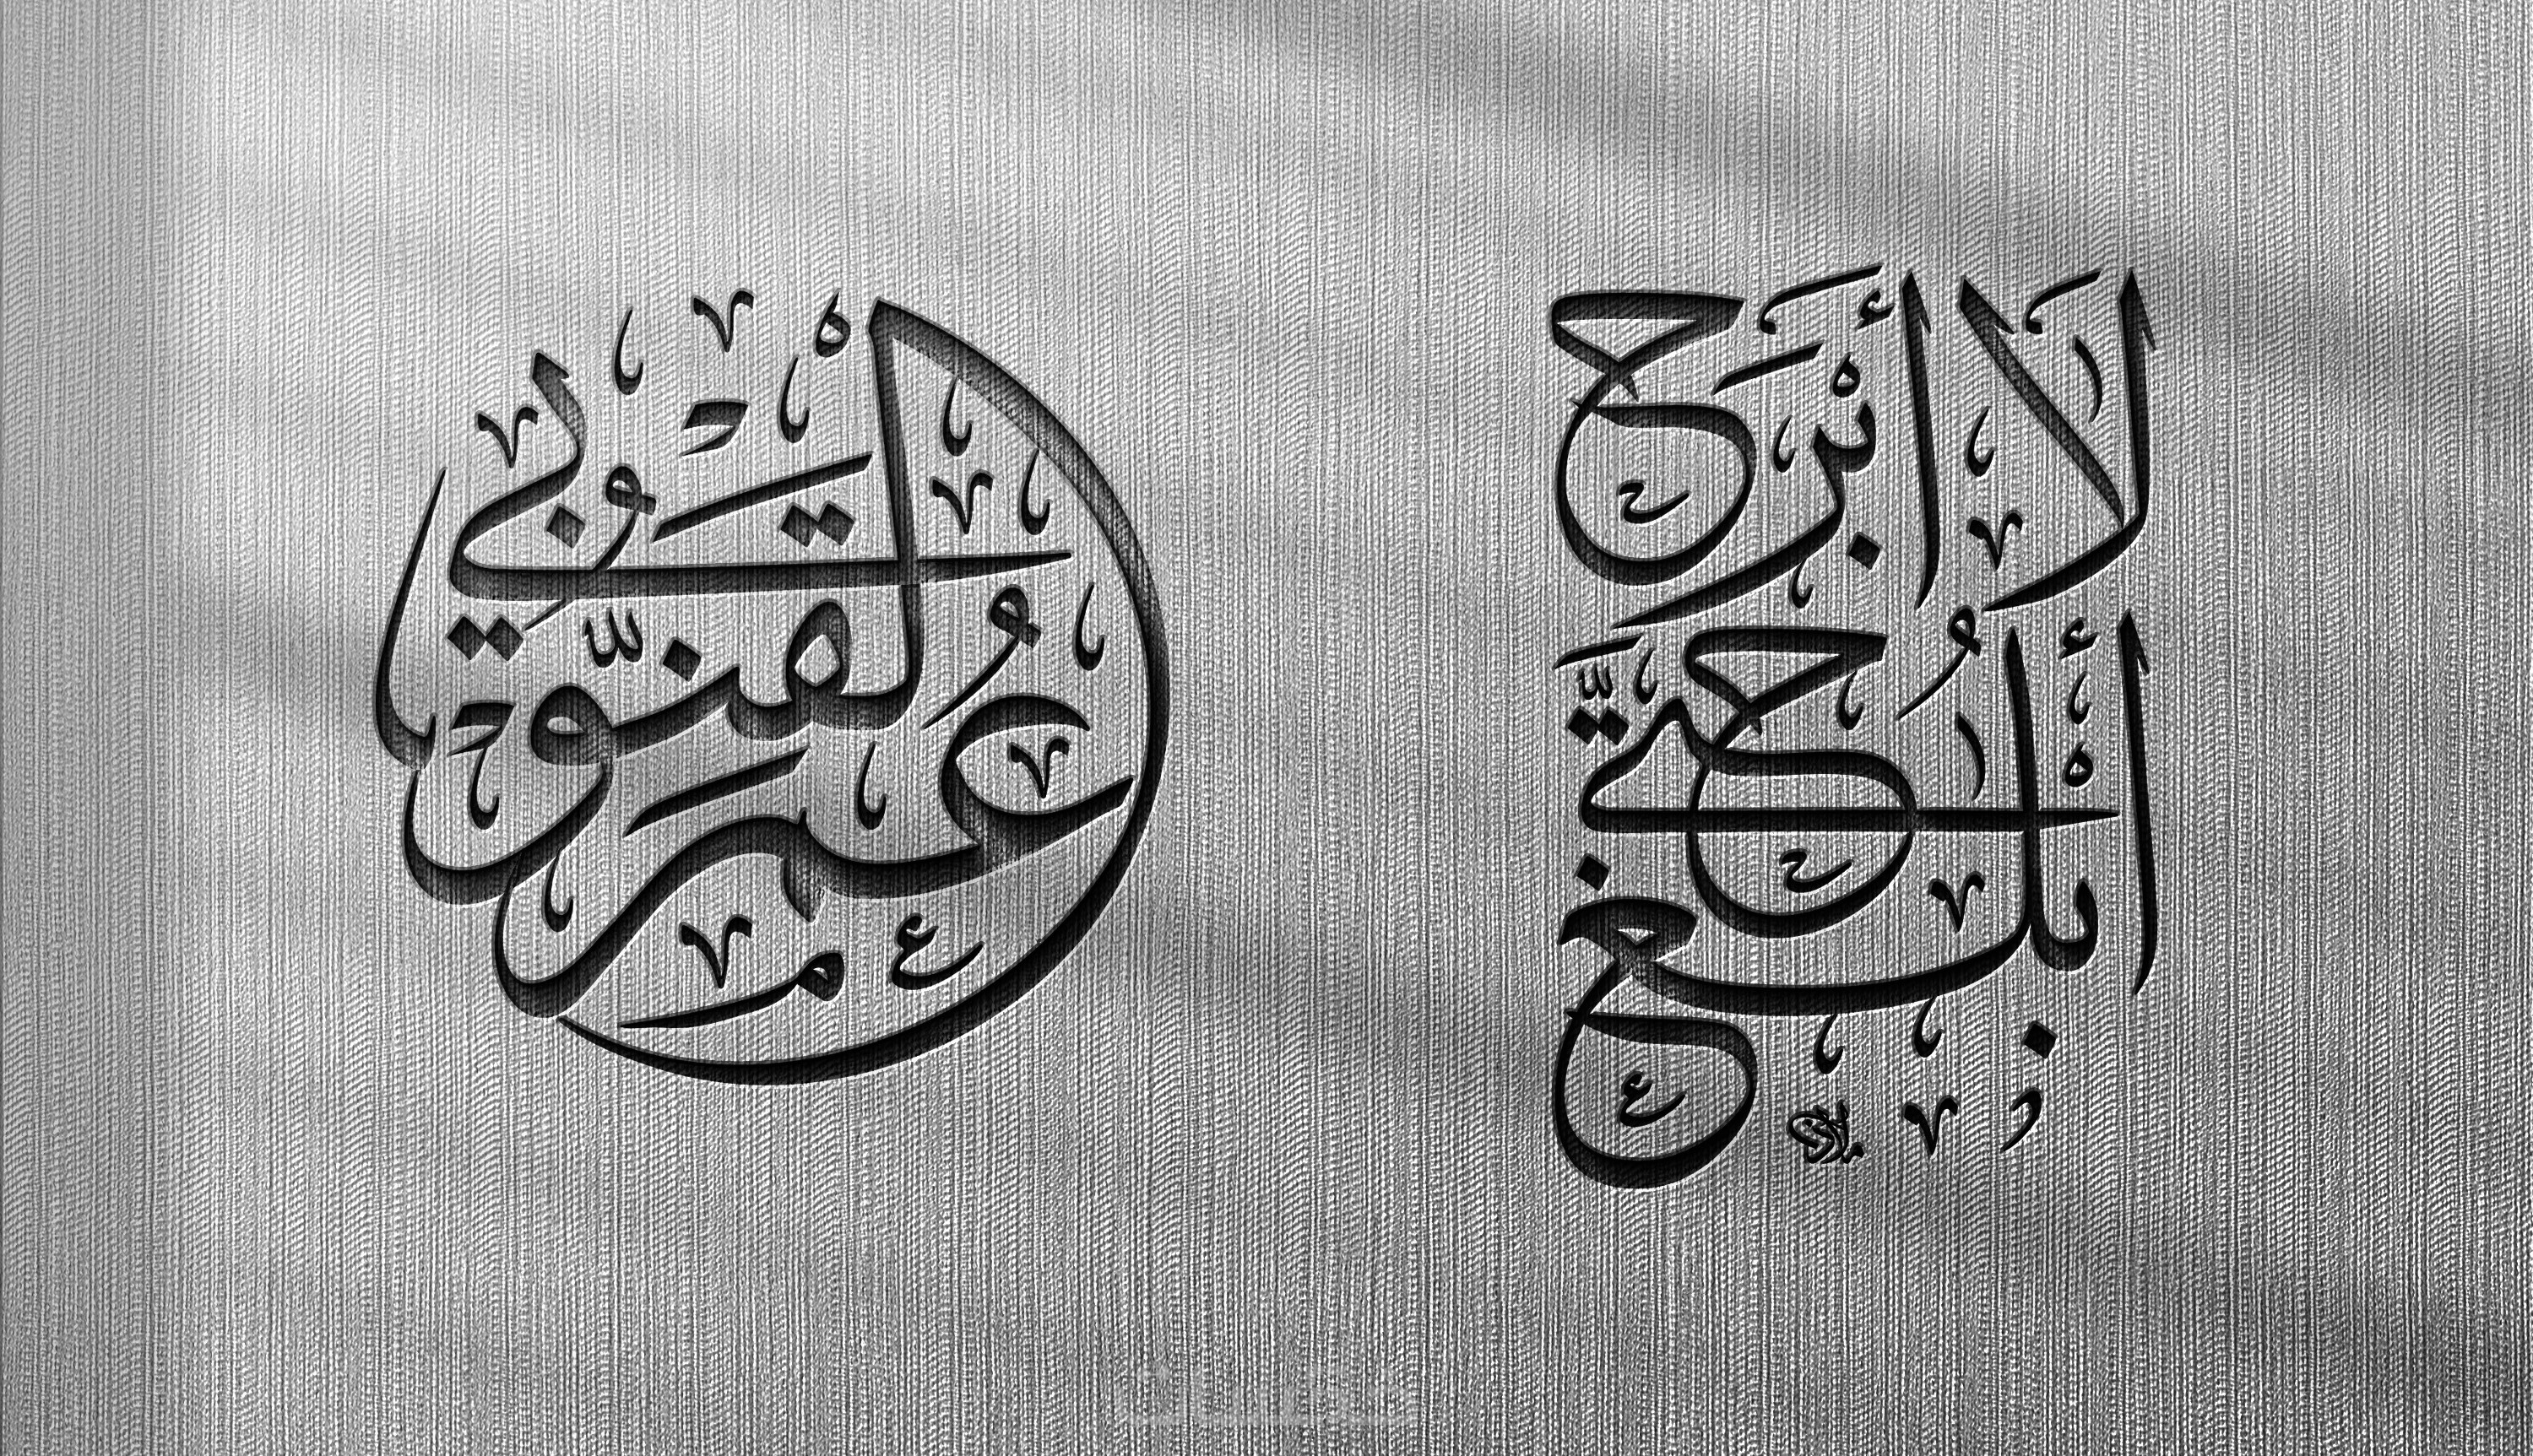 لَا أَبْرَحُ
حَتَّى
أَبْلُغَ
عُمَر
القَنُّوبِي